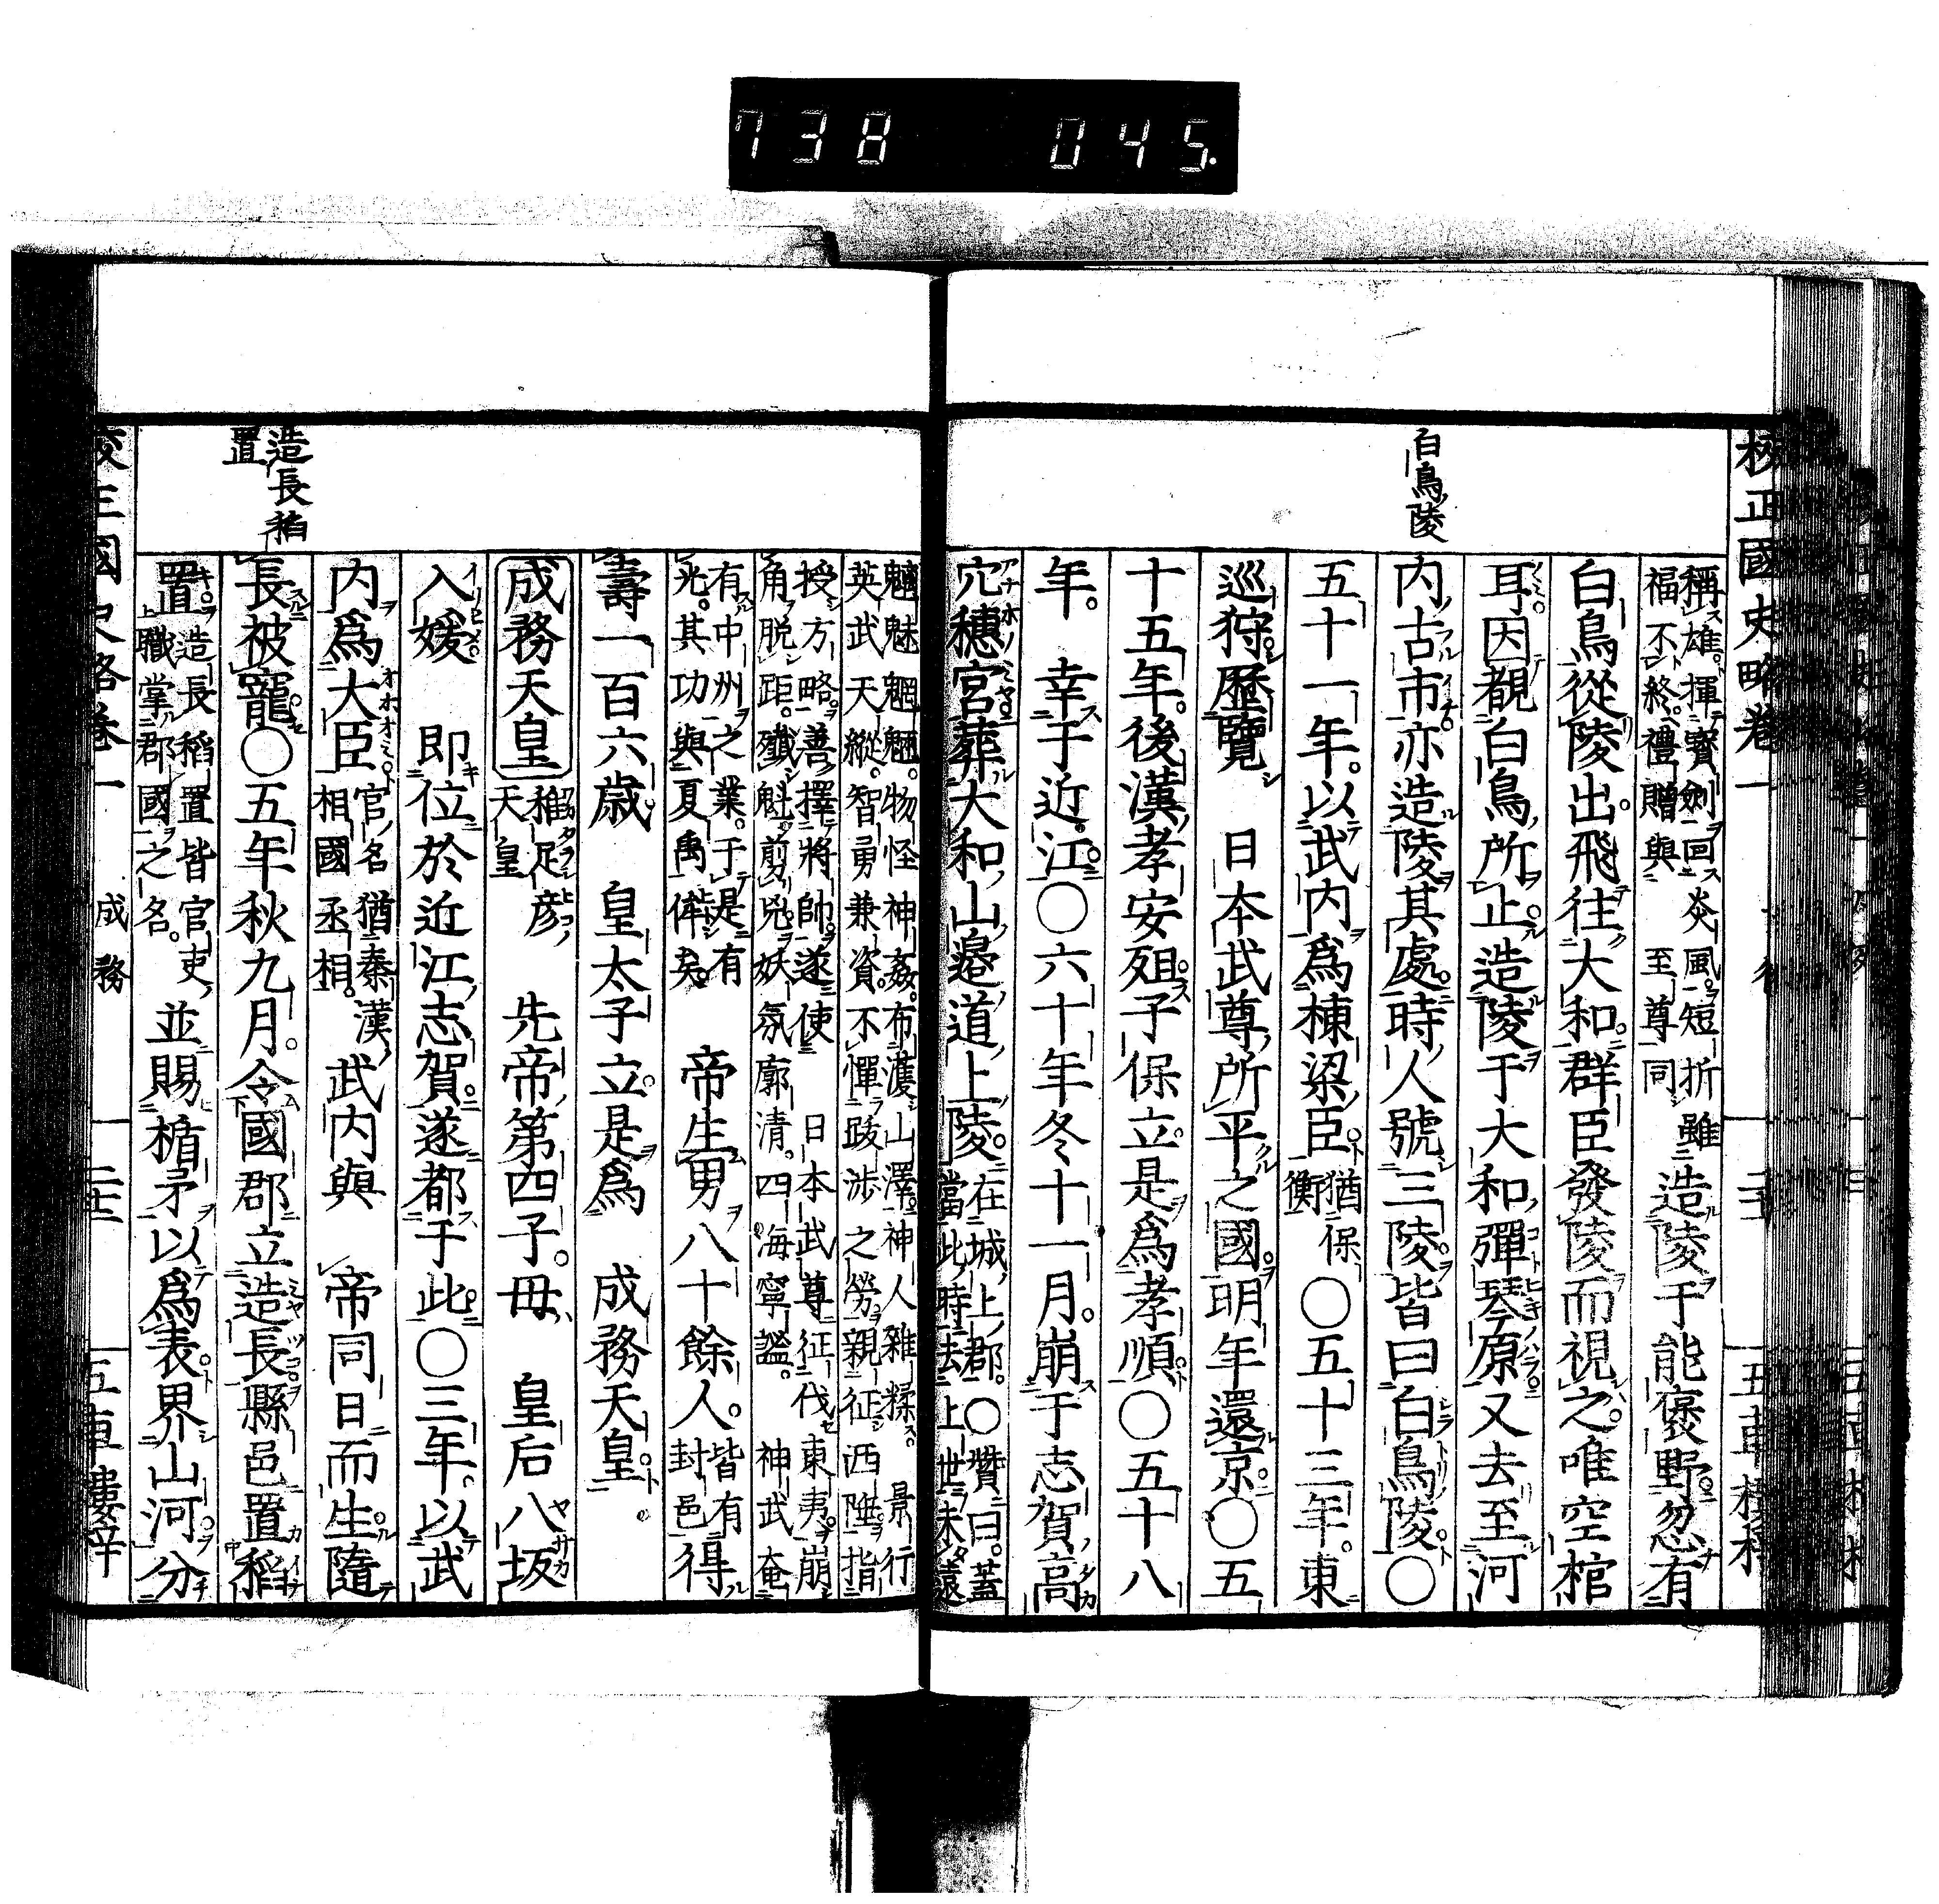 738 045.
校正國史略卷一
五車樓梓
白鳥陵
稱雄。揮寶劍回炎風。短折雖
福不終。禮贈與至尊同
造陵于能褒野。忽有
白鳥從陵出。飛往大和。群臣發陵而視之。唯空棺
耳。因覩白鳥所止。造陵于大和彈琴原。又去至河
内古市。亦造陵其處。時人號三陵。皆曰白鳥陵。〇
五十一年。以武内爲棟梁臣。
猶保
衡
〇五十三年。東
巡狩歷覽日本武尊所平之國。明年還京。〇五
十五年。後漢孝安殂。子保立。是爲孝順。〇五十八
年。幸于近江。〇六十年冬十一月。崩于志賀高
穴穗宮。葬大和山邊道上陵。
在城上郡。〇贊曰。蓋
當此時去上世未遠
魑魅魍魎。物怪神姦。布濩山澤。神人雜糅。景行
英武天縱。智勇兼資。不憚跋涉之勞。親征西陲。指
授方略。善擇將帥。遂使日本武尊征伐東夷。崩
角脱距。殲魁剪兇。妖氛廓清。四海寧謐。神武奄
有中州之業。于是有
光。其功與夏禹侔矣。
帝生男八十餘人。
皆有
封邑
得
壽一百六歳皇太子立。是爲成務天皇。
成務天皇
稚足彦
天皇
先帝第四子。母皇后八坂
入媛即位於近江志賀。遂都于此。〇三年。以武
内爲大臣
官名猶秦漢
相國丞相。
武内與帝同日而生。隨
長被寵。〇五年秋九月。令國郡立造長縣邑置稻
置
造長稻置皆官吏
職掌郡國之名。
並賜楯矛以爲表。界山河。分
造長稻
置
成務
五車樓梓